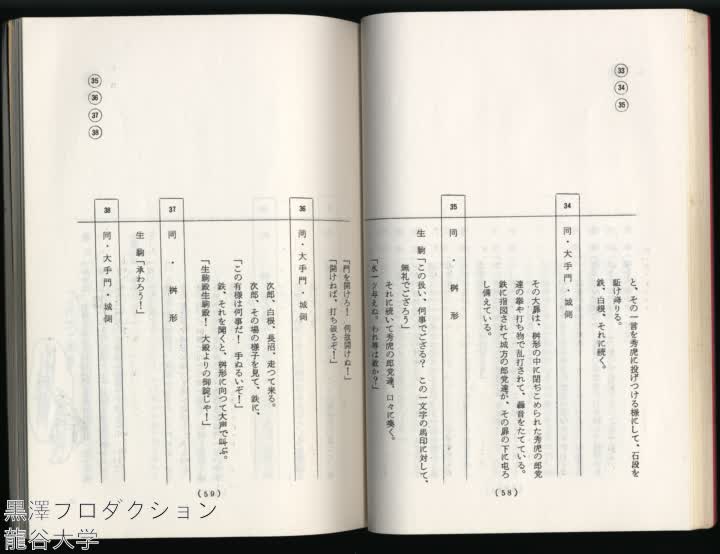 ㉝
㉞
㉟
と、その一言を秀虎に投げつける様にして、石段を
駈け降りる。
鉄、白根、それに続く。
34
同・大手門・城側
その大扉は、桝形の中に閉じこめられた秀虎の郎党
達の拳や打ち物で乱打されて、轟音をたてている。
鉄に指図されて城方の郎党達が、その扉の下に屯ろ
し備えている。
35
同・桝形
生駒「この扱い、何事でござる? この一文字の馬印に対して、
無礼でござろう」
それに続いて秀虎の郎党達、口々に喚く。
「水一ツ与えぬ。われ等は敵か?」
(58)
㉟
㊱
㊲
㊳
「門を開けろ! 何故開けぬ!」
「開けねば、打ち破るぞ!」
36
同・大手門・城側
次郎、白根、長沼、走って来る。
次郎、その場の様子を見て、鉄に、
「この有様は何事だ! 手ぬるいぞ!」
鉄、それを聞くと、桝形に向って大声で叫ぶ。
「生駒殿生駒殿! 大殿よりの御諚じゃ!」
37
同・桝形
生駒「承わろう!」
38
同・大手門・城側
(59)
黒澤プロダクション
龍谷大学